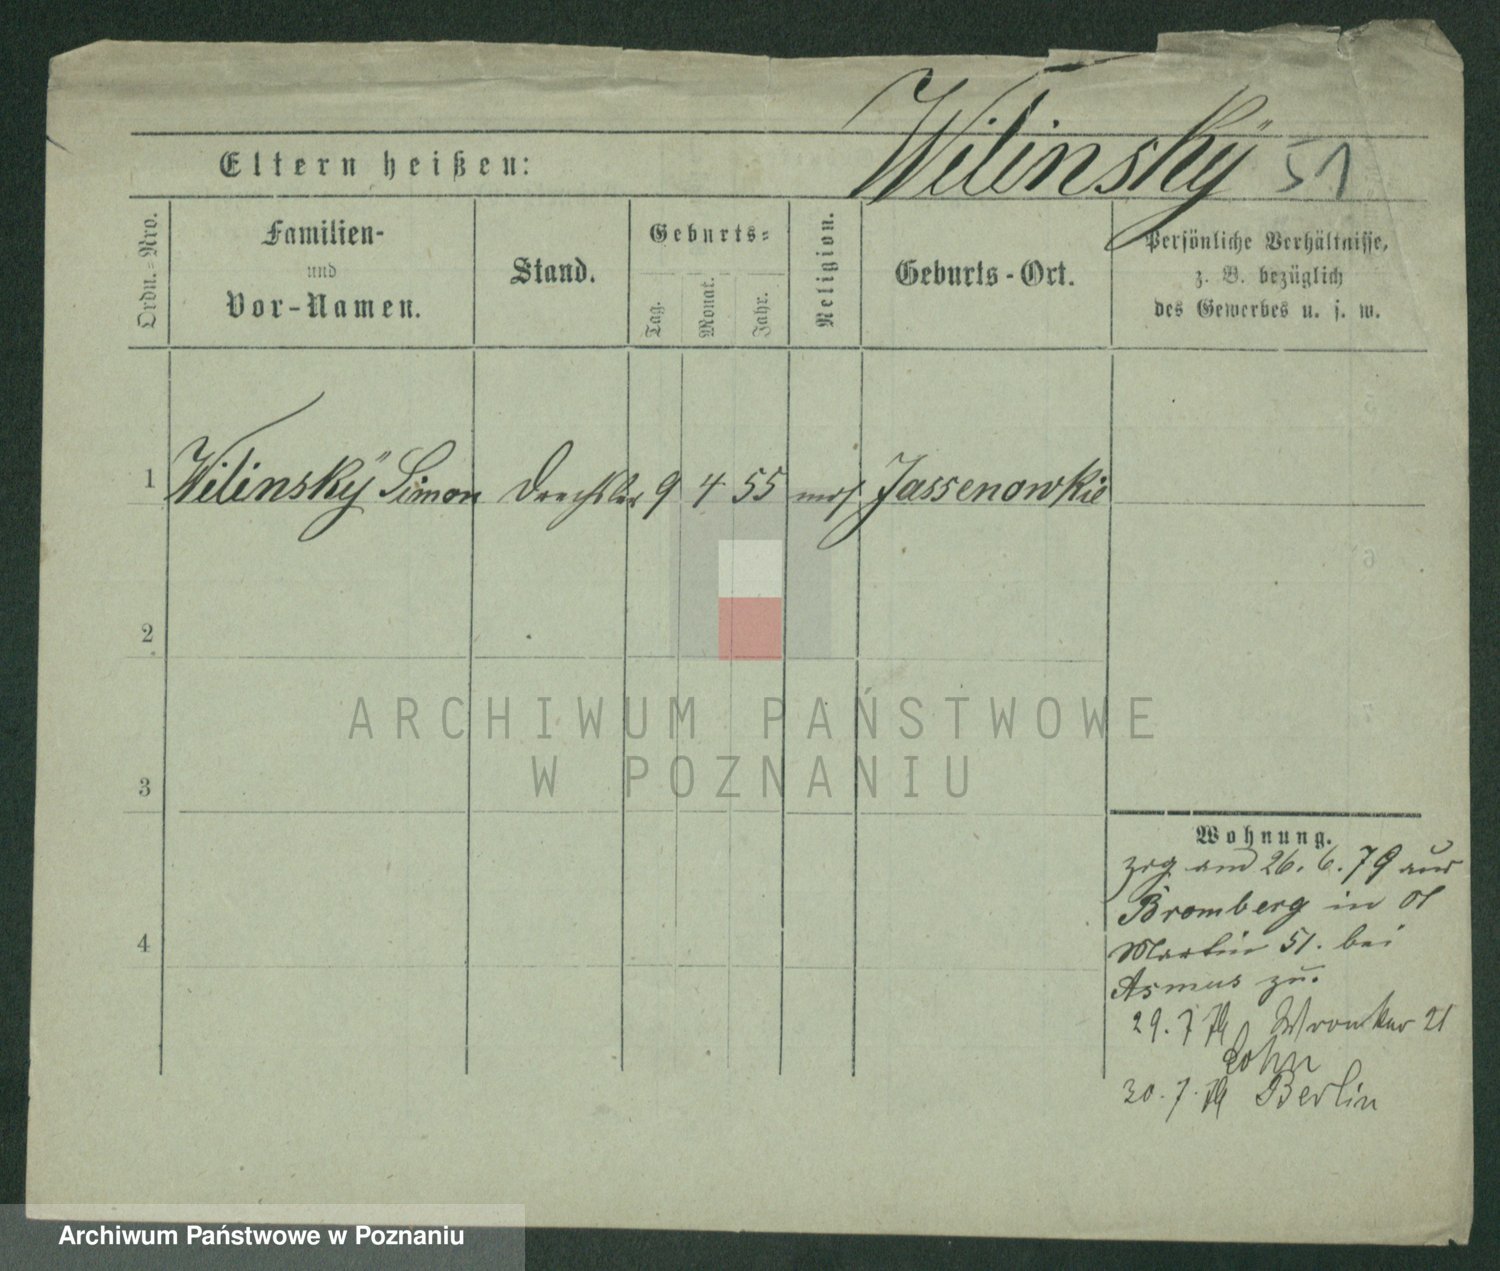 Wilinsky 51
Eltern heißen:
Ordn.-Nro.
Familien-
und
Vor-Namen.
Stand.
Geburts-
Tag.
Monat.
Jahr.
Religion.
Geburts-Ort.
Persönliche Verhältnisse,
z. B. bezüglich
des Gewerbes u. s. w.
1 Wilinsky Simon Drechsler 9 4 55 mos. Jassenowkie
2
3
4
Wohnung.
zog am 26.6.79 aus
Bromberg in St
Martin 51. bei
Asmus zu.
29.7.79 Wronker 21
Cohn
30.7.79 Berlin
ARCHIWUM PAŃSTWOWE
W POZNANIU
Archiwum Państwowe w Poznaniu